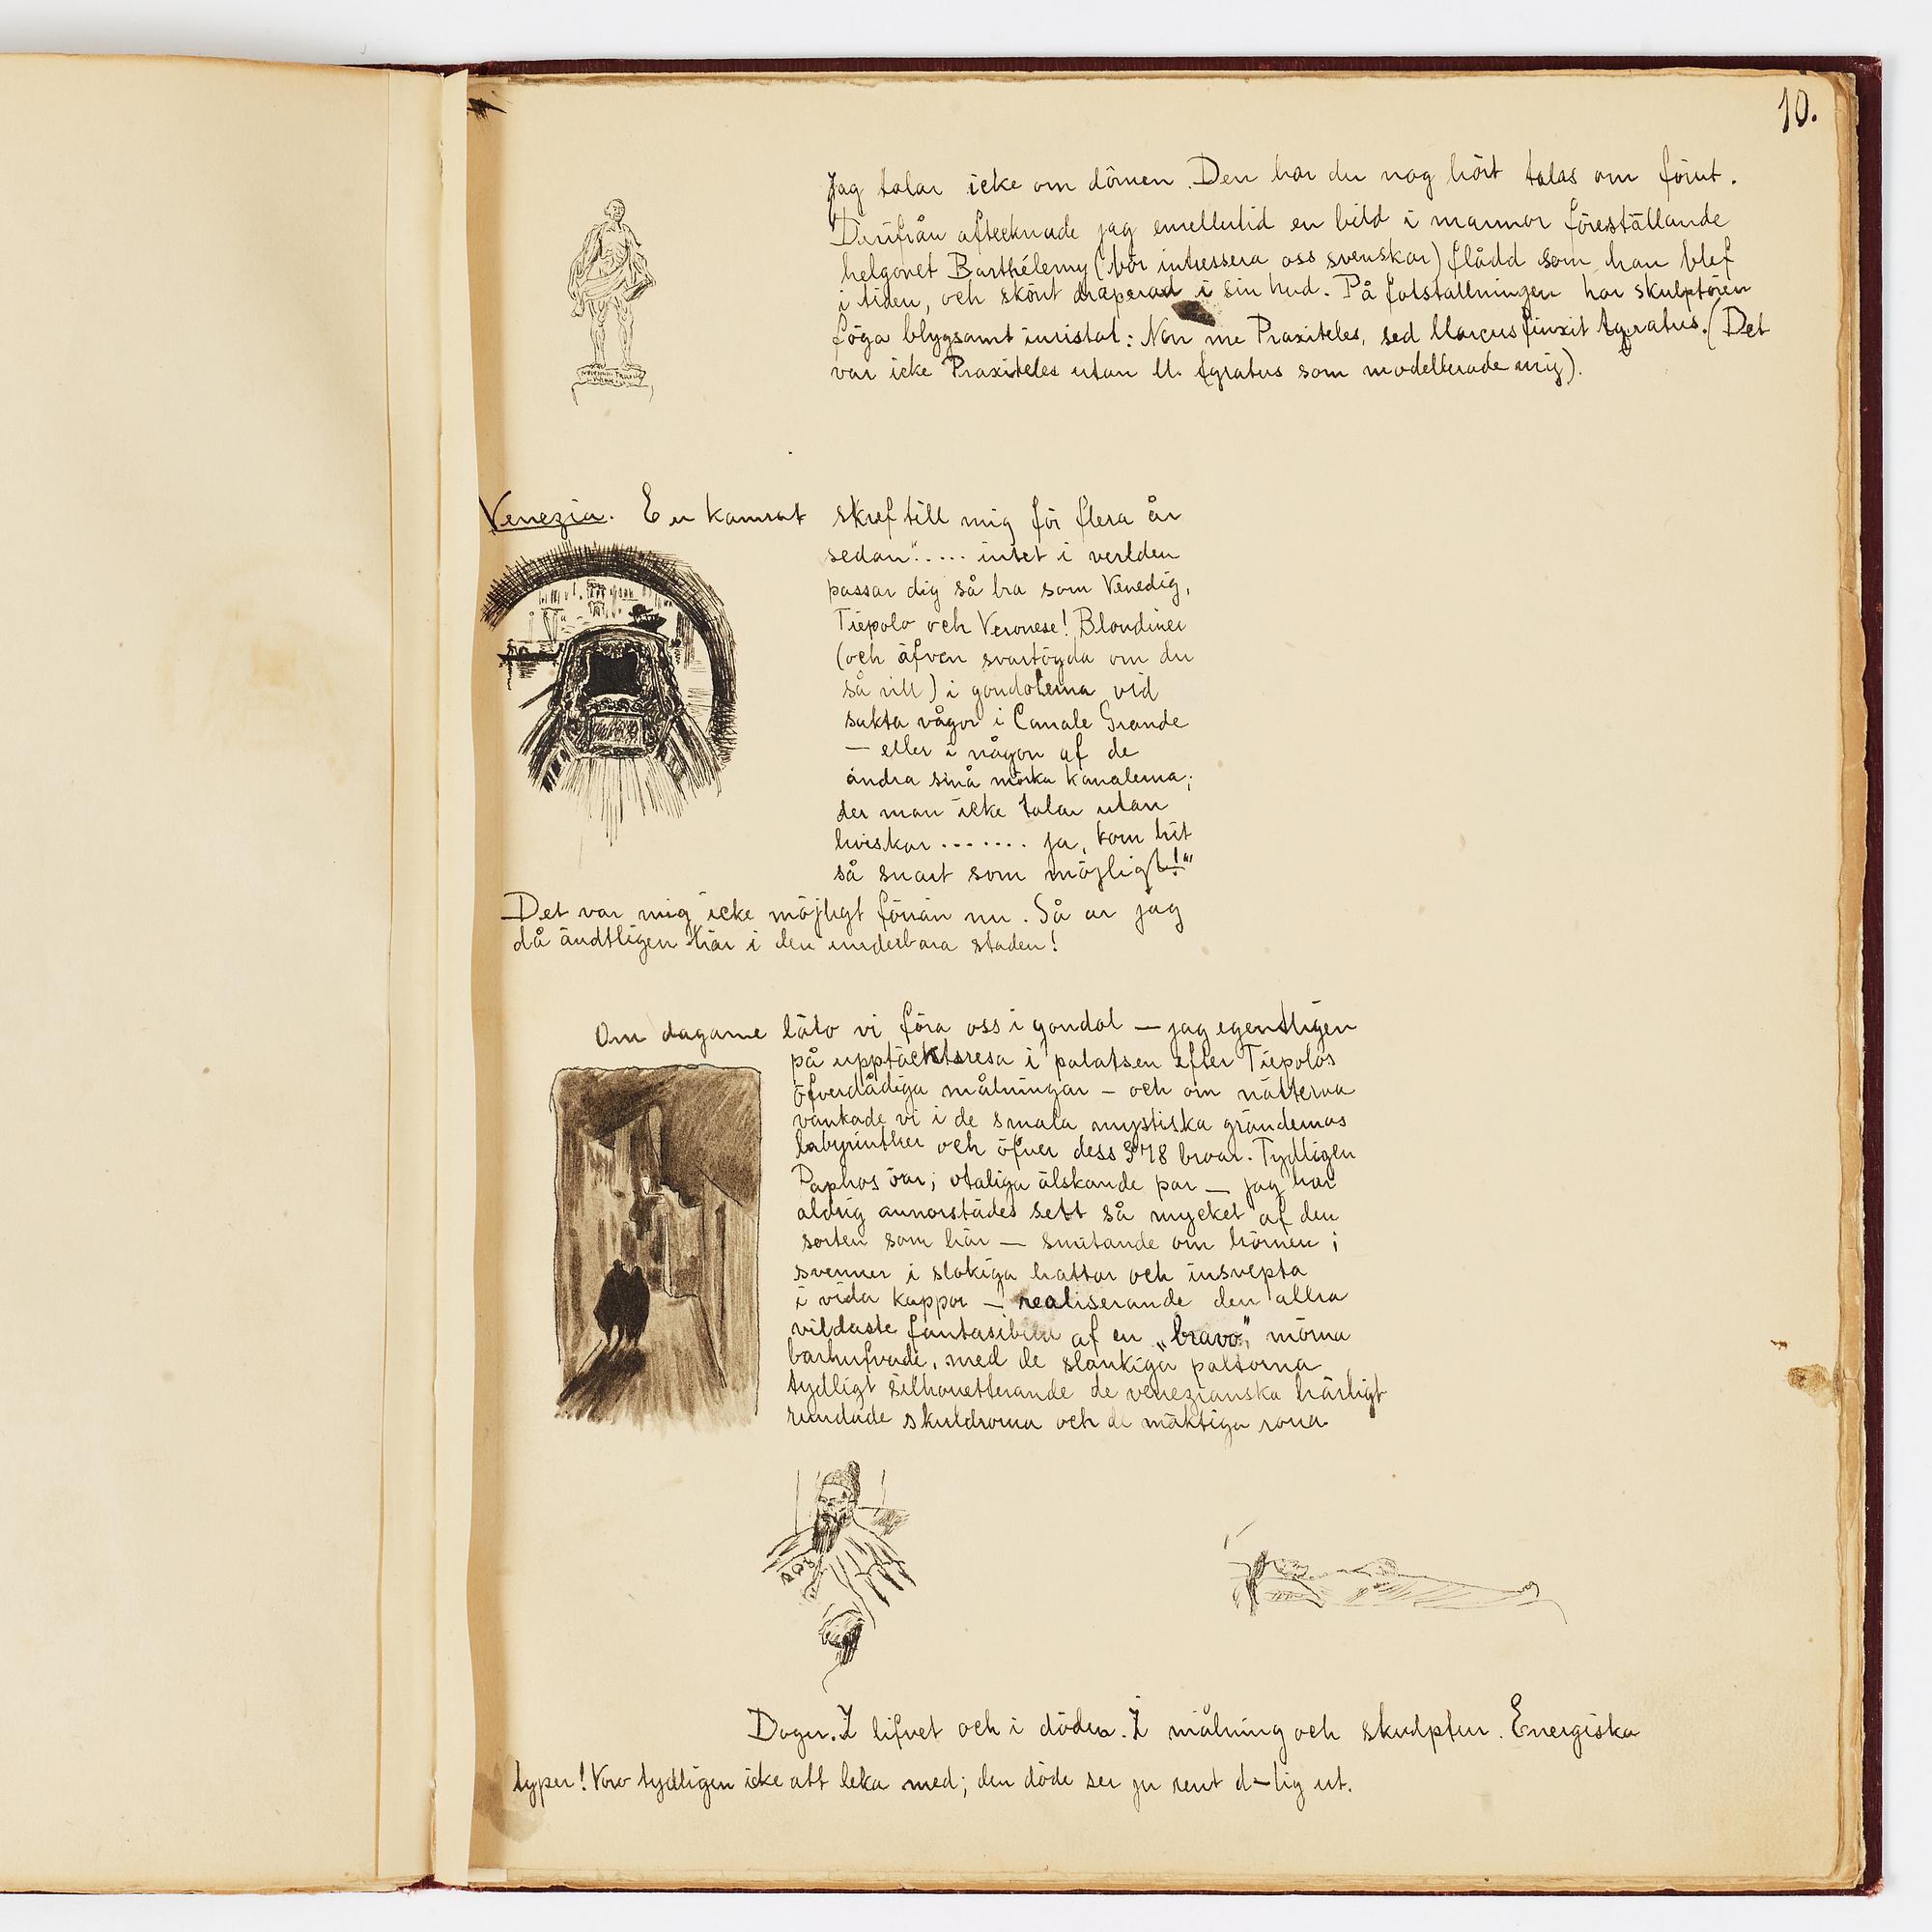 10.
Jag talar icke om dômen. Den har du nog hört talas om förut.
Derifrån aftecknade jag emellertid en bild i marmor föreställande
helgonet Barthélemy (bör intressera oss svenskar) flådd som han blef
i tiden, och skönt draperad i sin hud. På fotställningen har skulptören
föga blygsamt inristat: Non me Praxiteles, sed Marcus finxit Agratus. (Det
var icke Praxiteles utan M. Agratus som modellerade mig).
Venezia. En kamrat skref till mig för flera år
sedan "..... intet i verlden
passar dig så bra som Venedig,
Tiepolo och Veronese! Blondiner
(och äfven svartögda om du
så vill) i gondolerna vid
sakta vågor i Canale Grande
— eller i någon af de
andra små mörka kanalerna,
der man icke talar utan
hviskar ....... ja, kom hit
så snart som möjligt!"
Det var mig icke möjligt förrän nu. Så är jag
då ändtligen här i den underbara staden!
Om dagarne läto vi föra oss i gondol — jag egentligen
på upptäcktsresa i palatsen efter Tiepolos
öfverdådiga målningar — och om nätterna
vankade vi i de smala mystiska grändernas
labyrinther och öfver dess 378 broar. Tydligen
Paphos öar; otaliga älskande par — jag har
aldrig annorstädes sett så mycket af den
sorten som här — smitande om hörnen;
svenner i slokiga hattar och insvepta
i vida kappor — realiserande den allra
vildaste fantasibild af en „bravo", mörna
barhufvade, med de slankiga paltorna
tydligt silhouetterande de venezianska härligt
rundade skuldrorna och de mäktiga
Doger. I lifvet och i döden. I målning och skulptur. Energiska
typer! Voro tydligen icke att leka med; den döde ser ju rent d—lig ut.